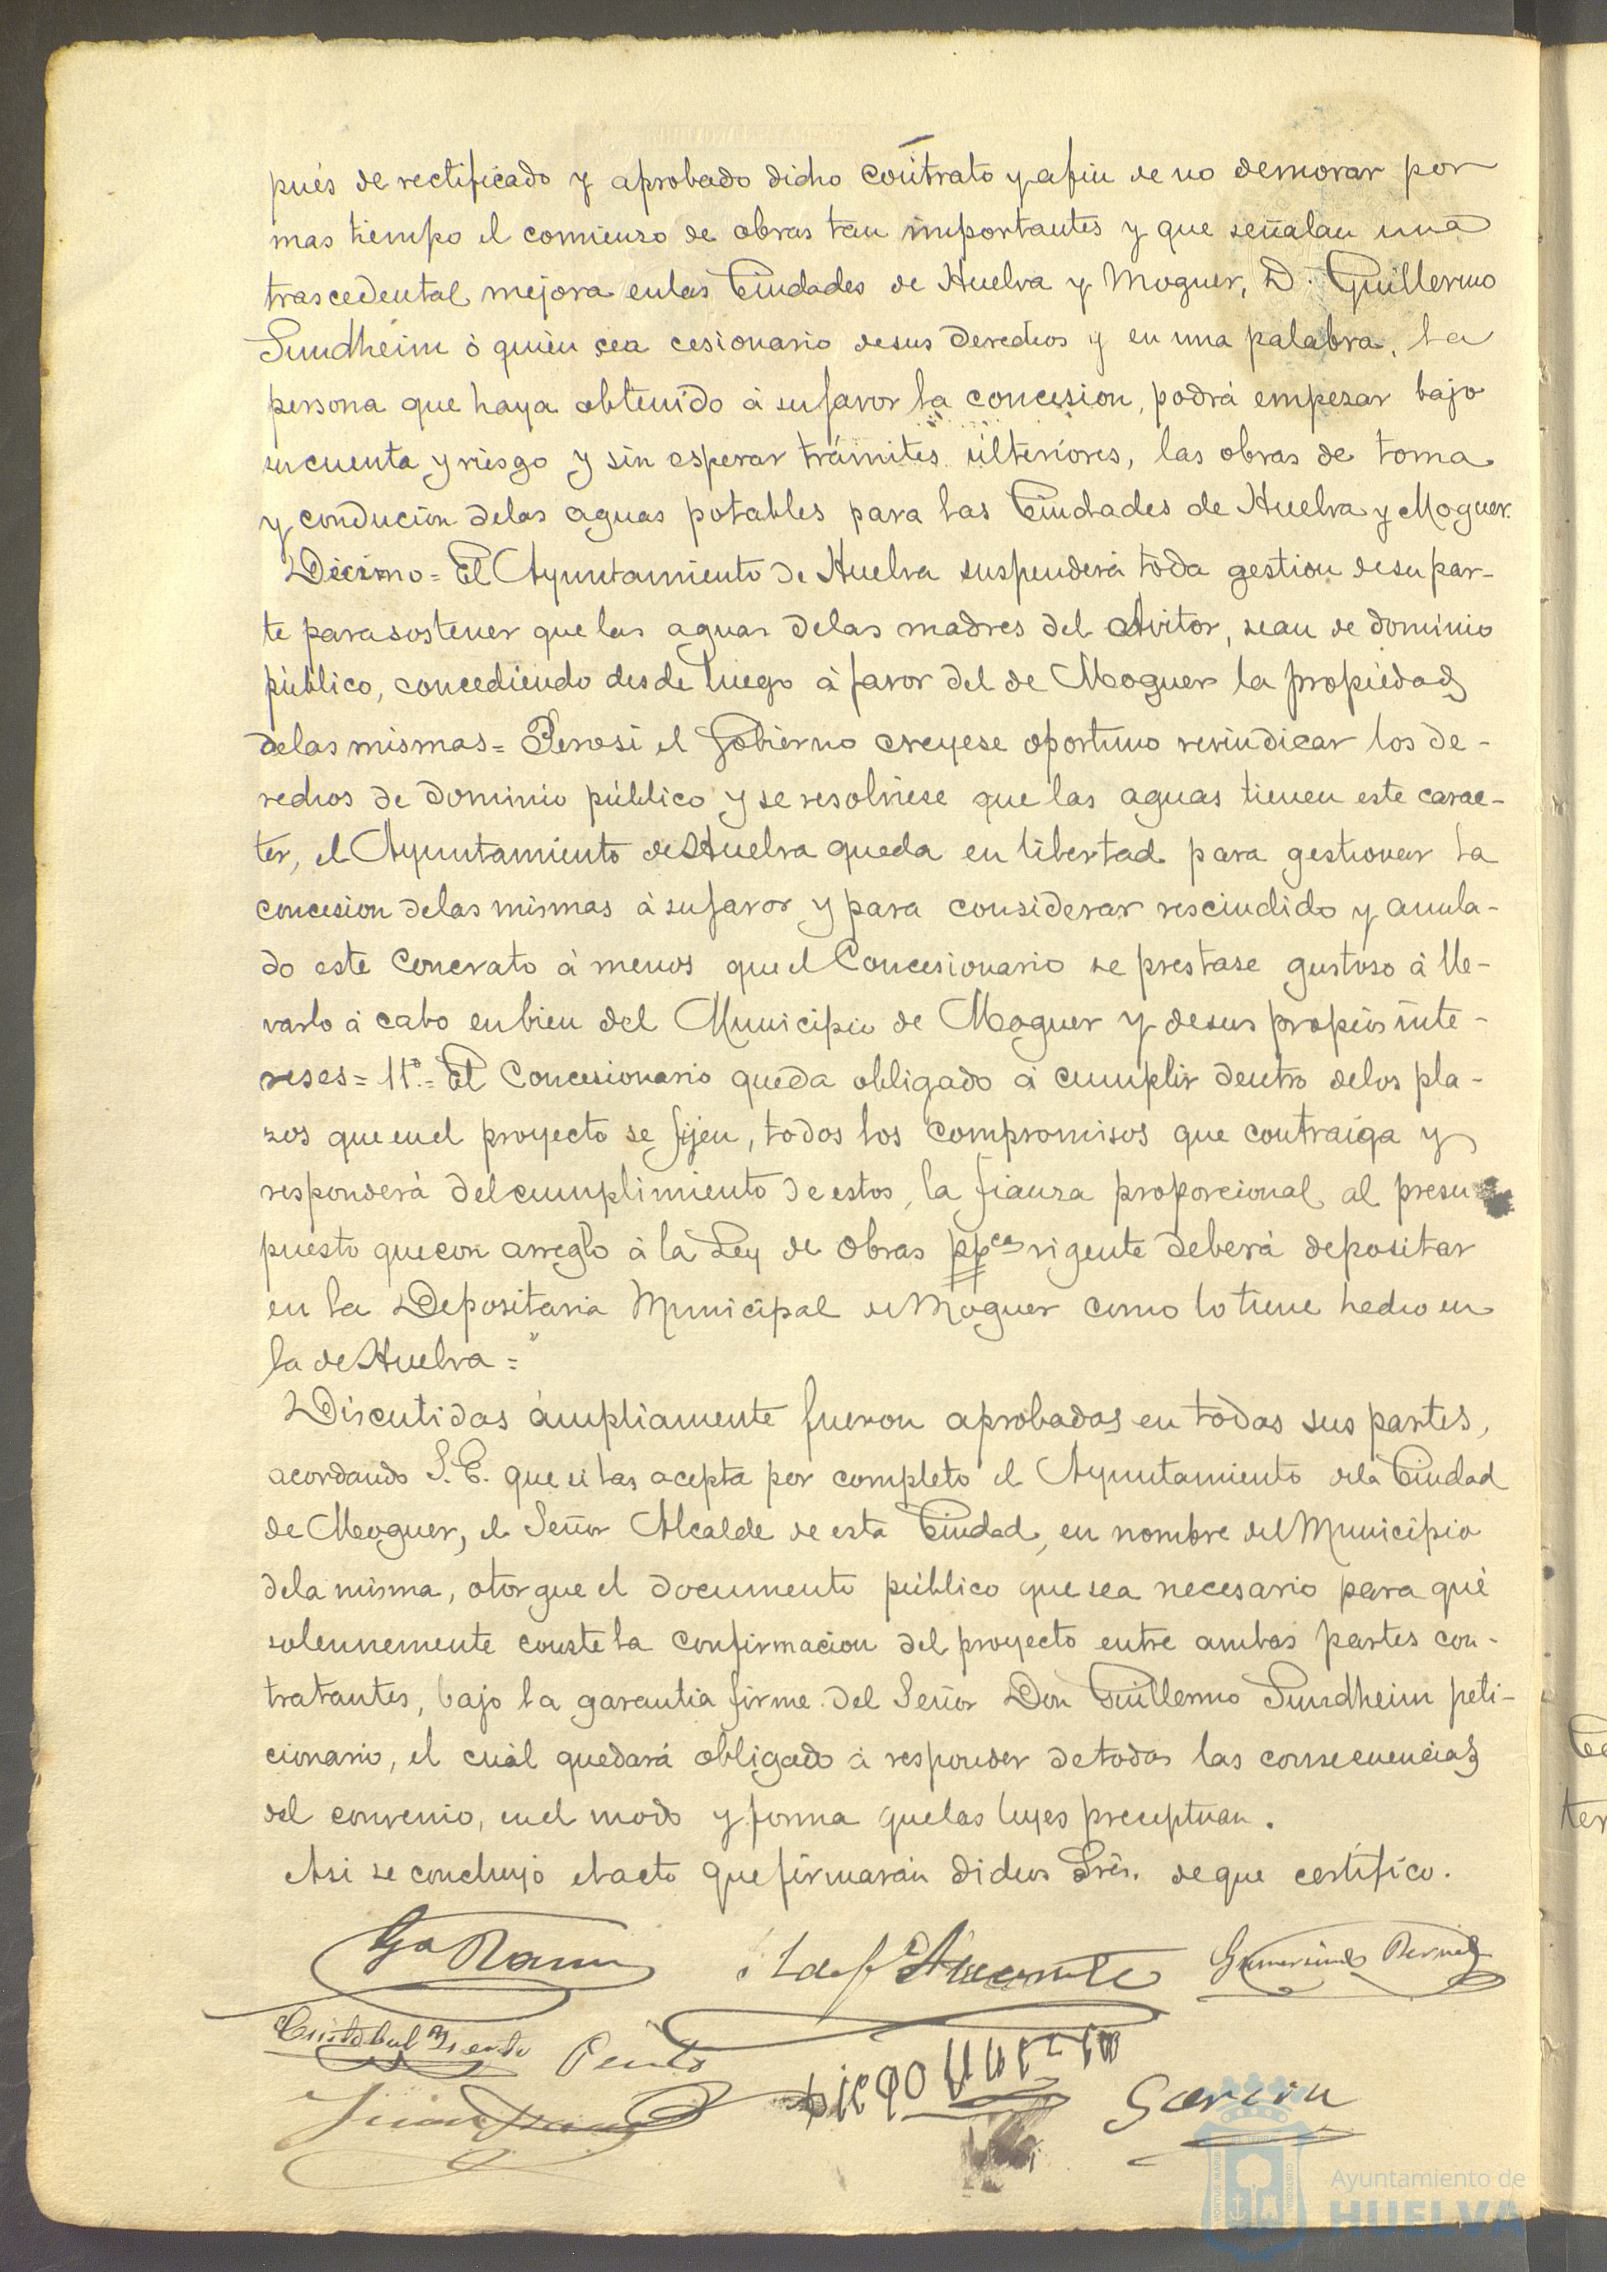 pués de rectificado y aprobado dicho contrato y afin de no demorar por
mas tiempo el comienzo de obras tan importantes y que señalan una
trascedental mejora enlas Ciudades de Huelva y Moguer, D. Guillermo
Sundheim ó quien sea cesionario desus derechos y en una palabra, la
persona que haya obtenido á su favor la concesion, podrá empezar bajo
su cuenta y riesgo y sin esperar trámites ulteriores, las obras de toma
y condución delas aguas potables para las Ciudades de Huelva y Moguer.
Décimo = El Ayuntamiento de Huelva suspenderá toda gestion desu par-
te para sostener que las aguas delas madres del Avitor, sean de dominio
público, concediendo desde luego á favor del de Moguer la propiedad
delas mismas = Pero si el Gobierno creyese oportuno revindicar los de-
rechos de dominio público y se resolviese que las aguas tienen este carac-
ter, el Ayuntamiento de Huelva queda en libertad para gestionar la
concesion delas mismas á su favor y para considerar rescindido y anula-
do este Concrato á menos que el Concesionario se prestase gustoso á lle-
varlo á cabo en bien del Municipio de Moguer y desus propios inte-
reses = 11º = El Concesionario queda obligado á cumplir dentro delos pla-
zos que en el proyecto se fijen, todos los compromisos que contraiga y
responderá del cumplimiento de estos, la fianza proporcional al presu-
puesto que con arreglo á la Ley de Obras ppcas vigente deberá depositar
en la Depositaria Municipal de Moguer como lo tiene hecho en
la de Huelva = "
Discutidas ámpliamente fueron aprobadas en todas sus partes,
acordando S. E. que si las acepta por completo el Ayuntamiento dela Ciudad
de Moguer, el Señor Alcalde de esta Ciudad, en nombre del Municipio
dela misma, otorgue el documento público que sea necesario para qué
solennemente conste la confirmacion del proyecto entre ambas partes con-
tratantes, bajo la garantia firme del Señor Don Guillermo Sundheim peti-
cionario, el cuál quedará obligado á responder de todas las consecuencias
del convenio, en el modo y forma que las leyes preceptuan.
Asi se concluyó el acto que firmarán dichos Srés. de que certifico.
Gª Ramos
Gumersindo Bernal
Cristobal
García
Ayuntamiento de
HUELVA